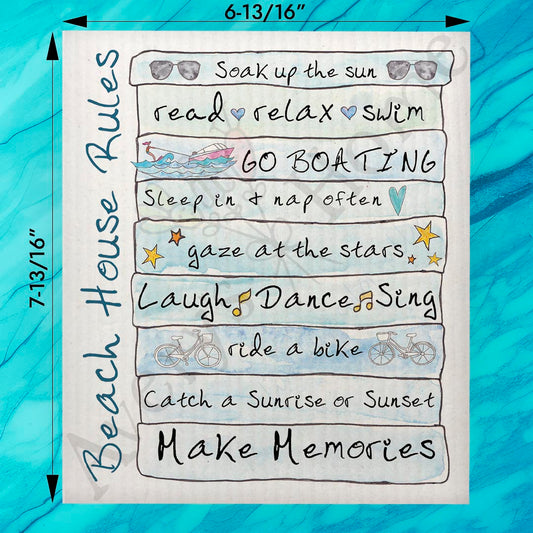 6-13/16"
7-13/16"
Beach House Rules
Soak up the sun
read relax swim
GO BOATING
Sleep in & nap often
gaze at the stars
Laugh Dance Sing
ride a bike
Catch a Sunrise or Sunset
Make Memories